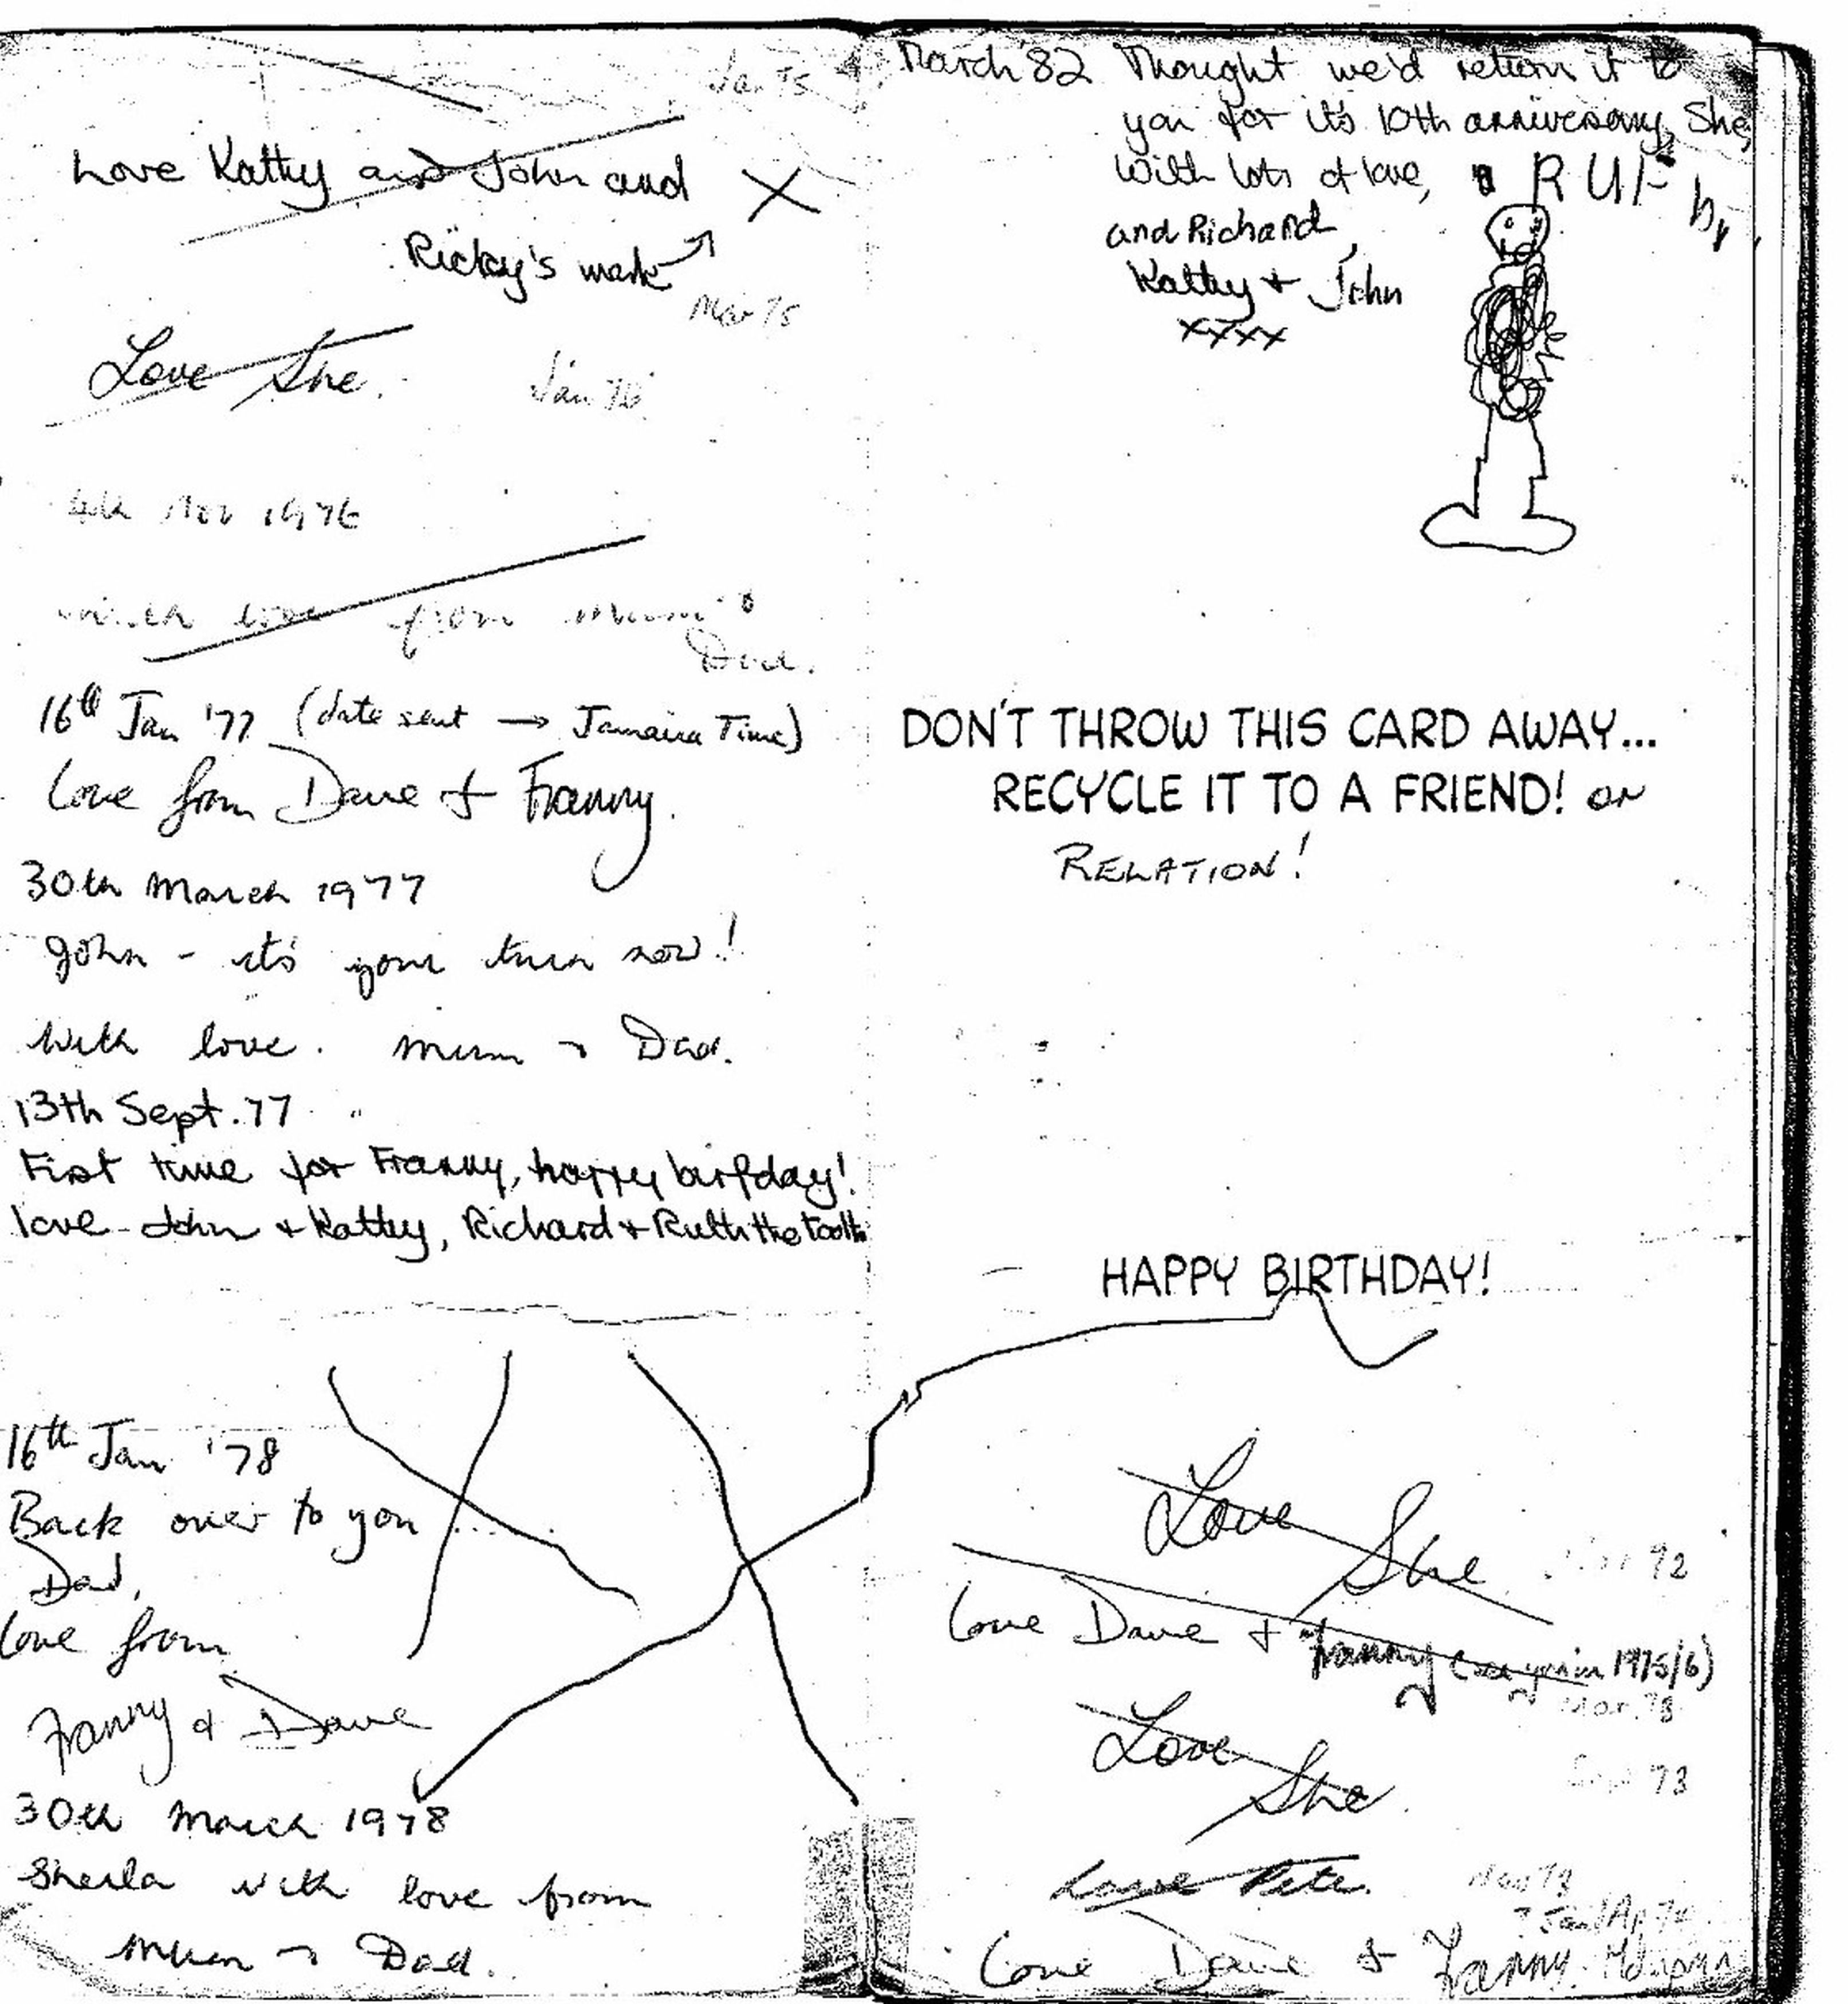 Jan 75
Love Kathy and John and X
Ricky's mark →
Mar 75
Love She.
Jan 76
4th Nov 1976
with love from Mum &
Dad.
16th Jan '77 (date sent → Jamaica Time)
Love from Dave & Franny.
30th March 1977
John - it's your turn now!
With love. Mum & Dad.
13th Sept. 77
First time for Franny, happy birfday!
love John + Kathy, Richard + Ruth the tooth
16th Jan '78
Back over to you ....
Dad,
Love from
Franny & Dave
30th March 1978
Sheila with love from
Mum & Dad.
March '82 Thought we'd return it to
you for it's 10th anniversary, She,
With lots of love,
RUTh
and Richard,
Kathy + John
xxxx
DON'T THROW THIS CARD AWAY...
RECYCLE IT TO A FRIEND! OR
RELATION!
HAPPY BIRTHDAY!
Love
She
72
Love Dave & Franny (see you in 1975/6)
Mar. 73
Love
She
Sept 73
Love Pete.
Love Dave & Franny.